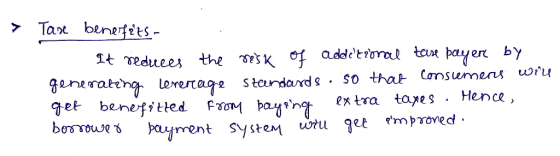 > Tax benefits -
It reduces the risk of additional tax payer by
generating leverage standards. so that consumers will
get benefitted from paying extra taxes. Hence,
borrower payment system will get improved.